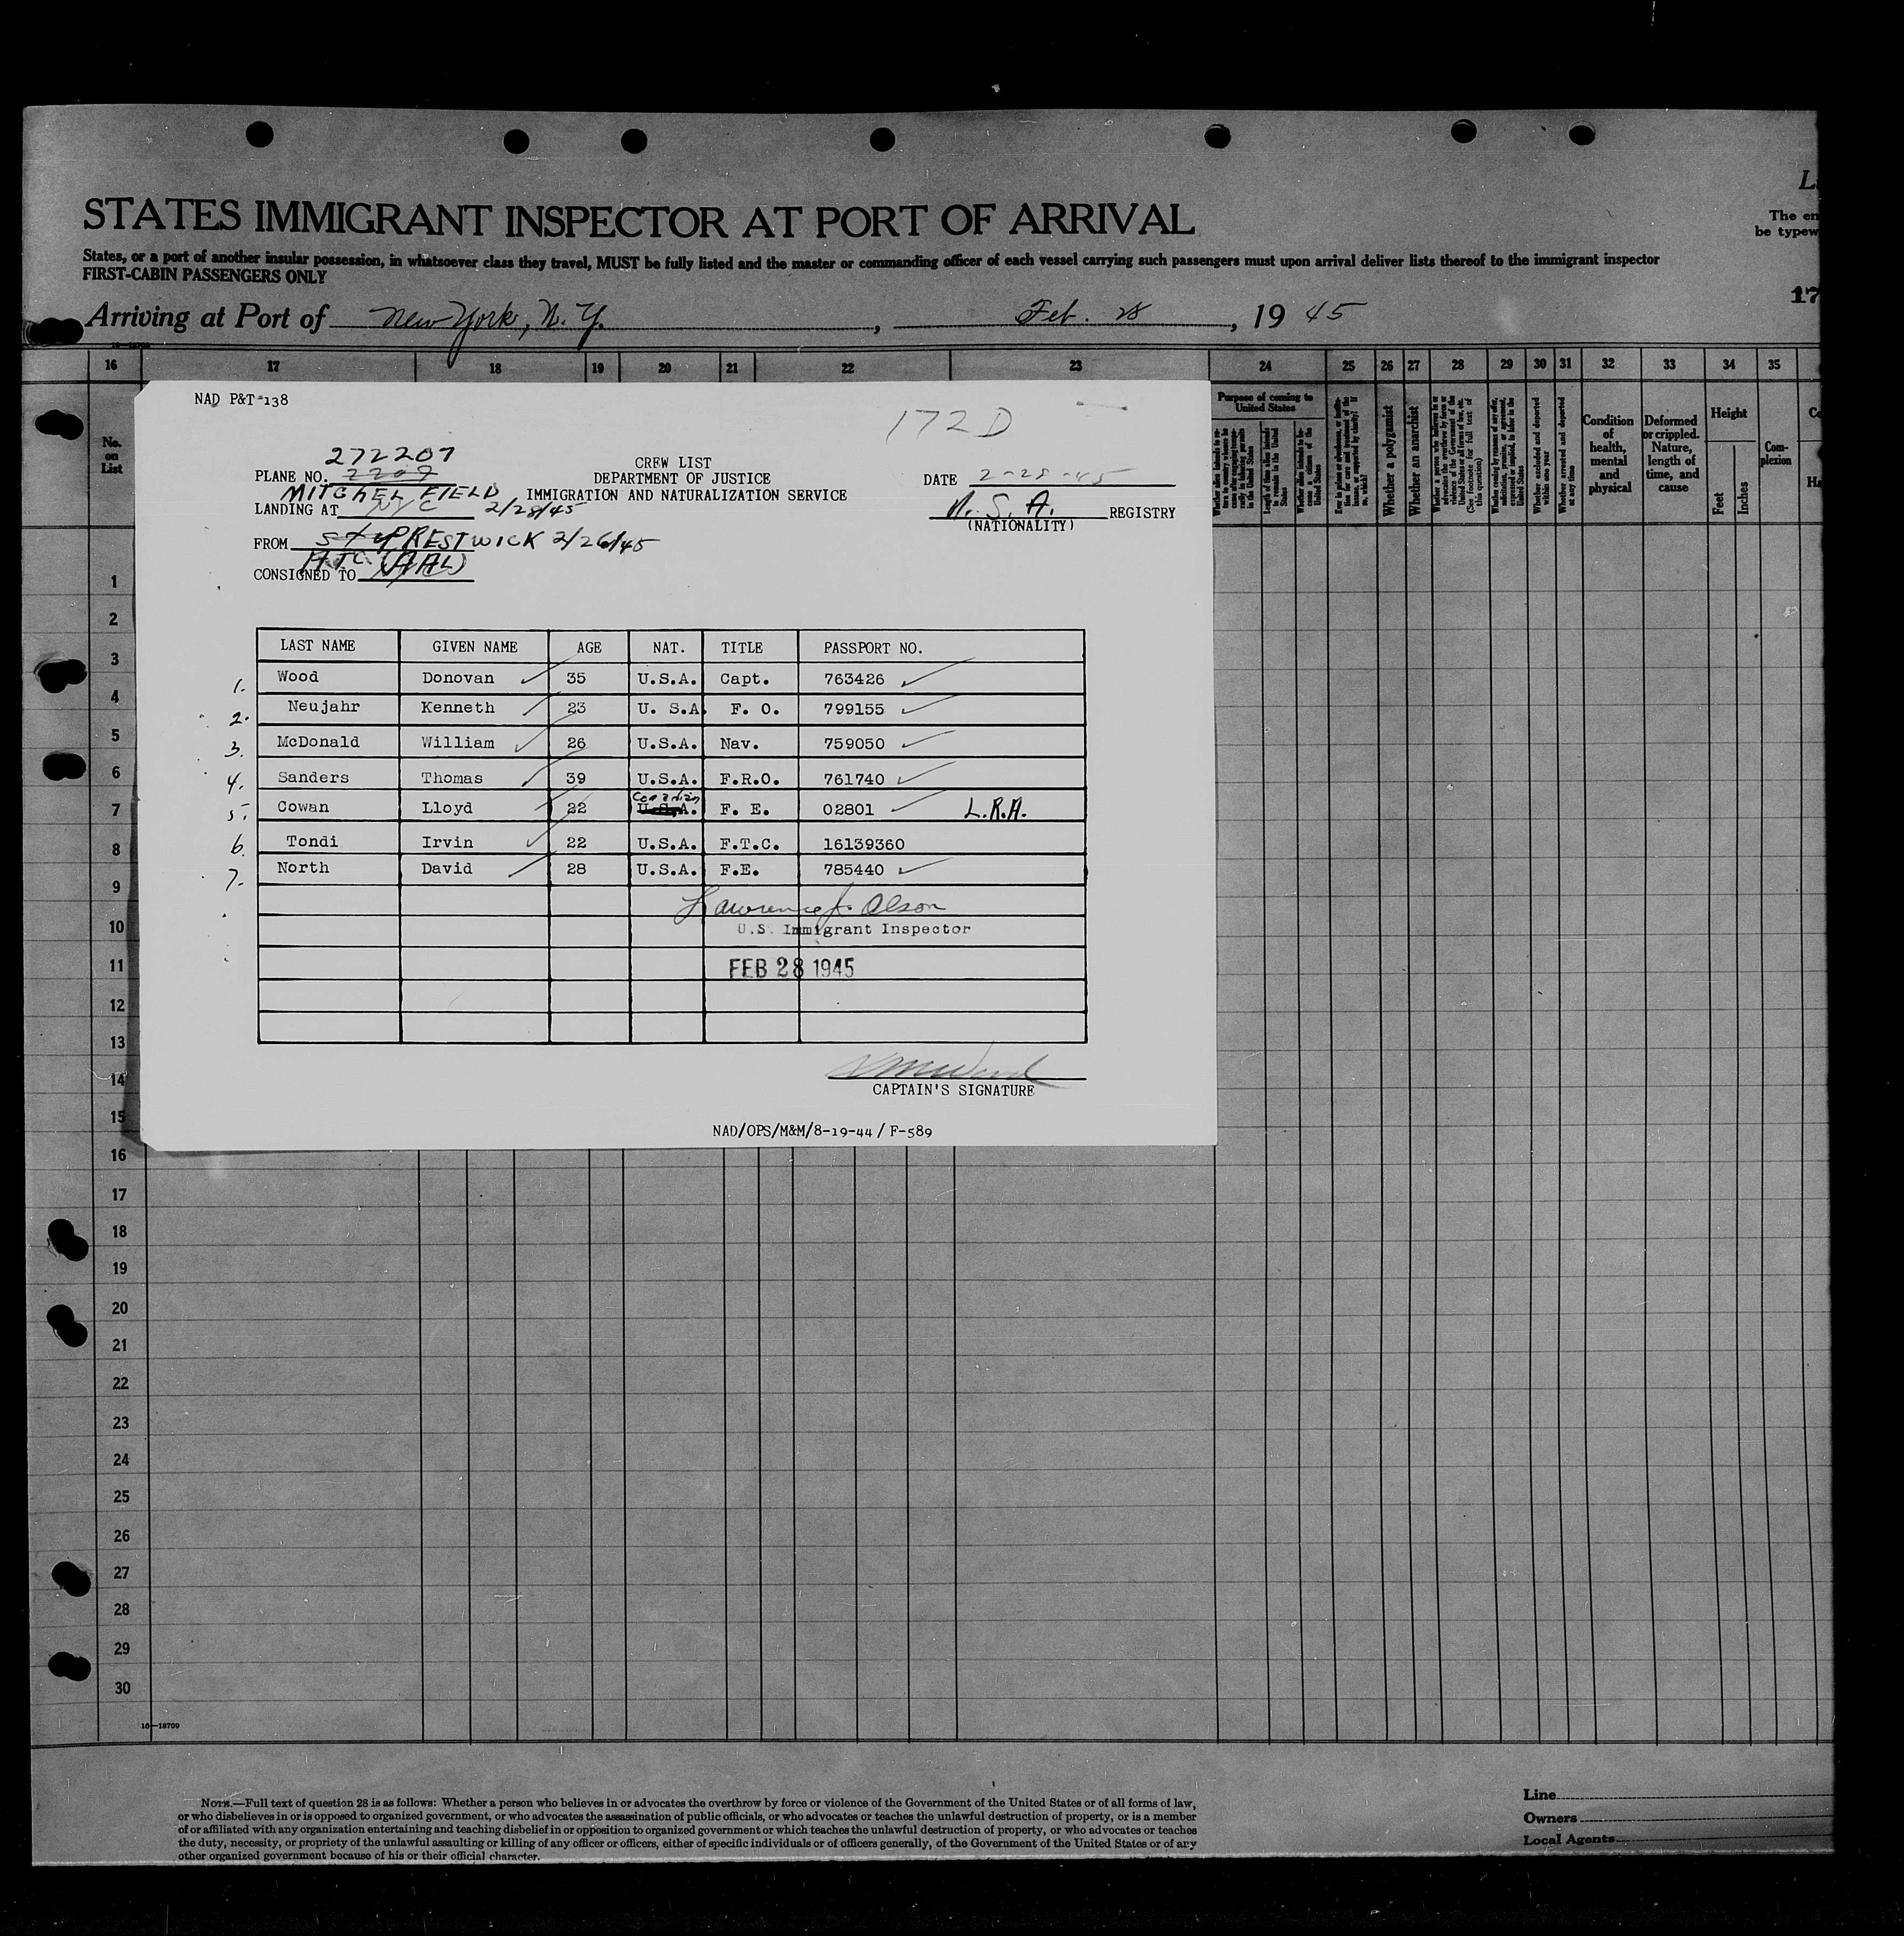 L
STATES IMMIGRANT INSPECTOR AT PORT OF ARRIVAL
The en
be typew
States, or a port of another insular possession, in whatsoever class they travel, MUST be fully listed and the master or commanding officer of each vessel carrying such passengers must upon arrival deliver lists thereof to the immigrant inspector
FIRST-CABIN PASSENGERS ONLY
17
Arriving at Port of New York, N. Y. , Feb. 28 , 19 45
16 17 18 19 20 21 22 23 24 25 26 27 28 29 30 31 32 33 34 35
No. on List
Purpose of coming to United States
Whether a polygamist
Whether an anarchist
Whether excluded and deported within one year
Whether arrested and deported at any time
Condition of health, mental and physical
Deformed or crippled. Nature, length of time, and cause
Height
Feet
Inches
Complexion
NAD P&T-138
172D
272207
PLANE NO. 2207
CREW LIST
DEPARTMENT OF JUSTICE
IMMIGRATION AND NATURALIZATION SERVICE
DATE 2-28-45
MITCHEL FIELD
LANDING AT NYC 2/28/45
U. S. A. REGISTRY
(NATIONALITY)
FROM PRESTWICK 2/26/45
ATC (AAL)
CONSIGNED TO
LAST NAME GIVEN NAME AGE NAT. TITLE PASSPORT NO.
1. Wood Donovan 35 U.S.A. Capt. 763426
2. Neujahr Kenneth 23 U. S.A. F. O. 799155
3. McDonald William 26 U.S.A. Nav. 759050
4. Sanders Thomas 39 U.S.A. F.R.O. 761740
Canadian
5. Cowan Lloyd 22 U.S.A. F. E. 02801 L.R.A.
6. Tondi Irvin 22 U.S.A. F.T.C. 16139360
7. North David 28 U.S.A. F.E. 785440
Lawrence J. Olson
U.S. Immigrant Inspector
FEB 28 1945
CAPTAIN'S SIGNATURE
NAD/OPS/M&M/8-19-44 / F-589
1
2
3
4
5
6
7
8
9
10
11
12
13
14
15
16
17
18
19
20
21
22
23
24
25
26
27
28
29
30
16—18709
NOTE.—Full text of question 28 is as follows: Whether a person who believes in or advocates the overthrow by force or violence of the Government of the United States or of all forms of law,
or who disbelieves in or is opposed to organized government, or who advocates the assassination of public officials, or who advocates or teaches the unlawful destruction of property, or is a member
of or affiliated with any organization entertaining and teaching disbelief in or opposition to organized government or which teaches the unlawful destruction of property, or who advocates or teaches
the duty, necessity, or propriety of the unlawful assaulting or killing of any officer or officers, either of specific individuals or of officers generally, of the Government of the United States or of any
other organized government because of his or their official character.
Line
Owners
Local Agents